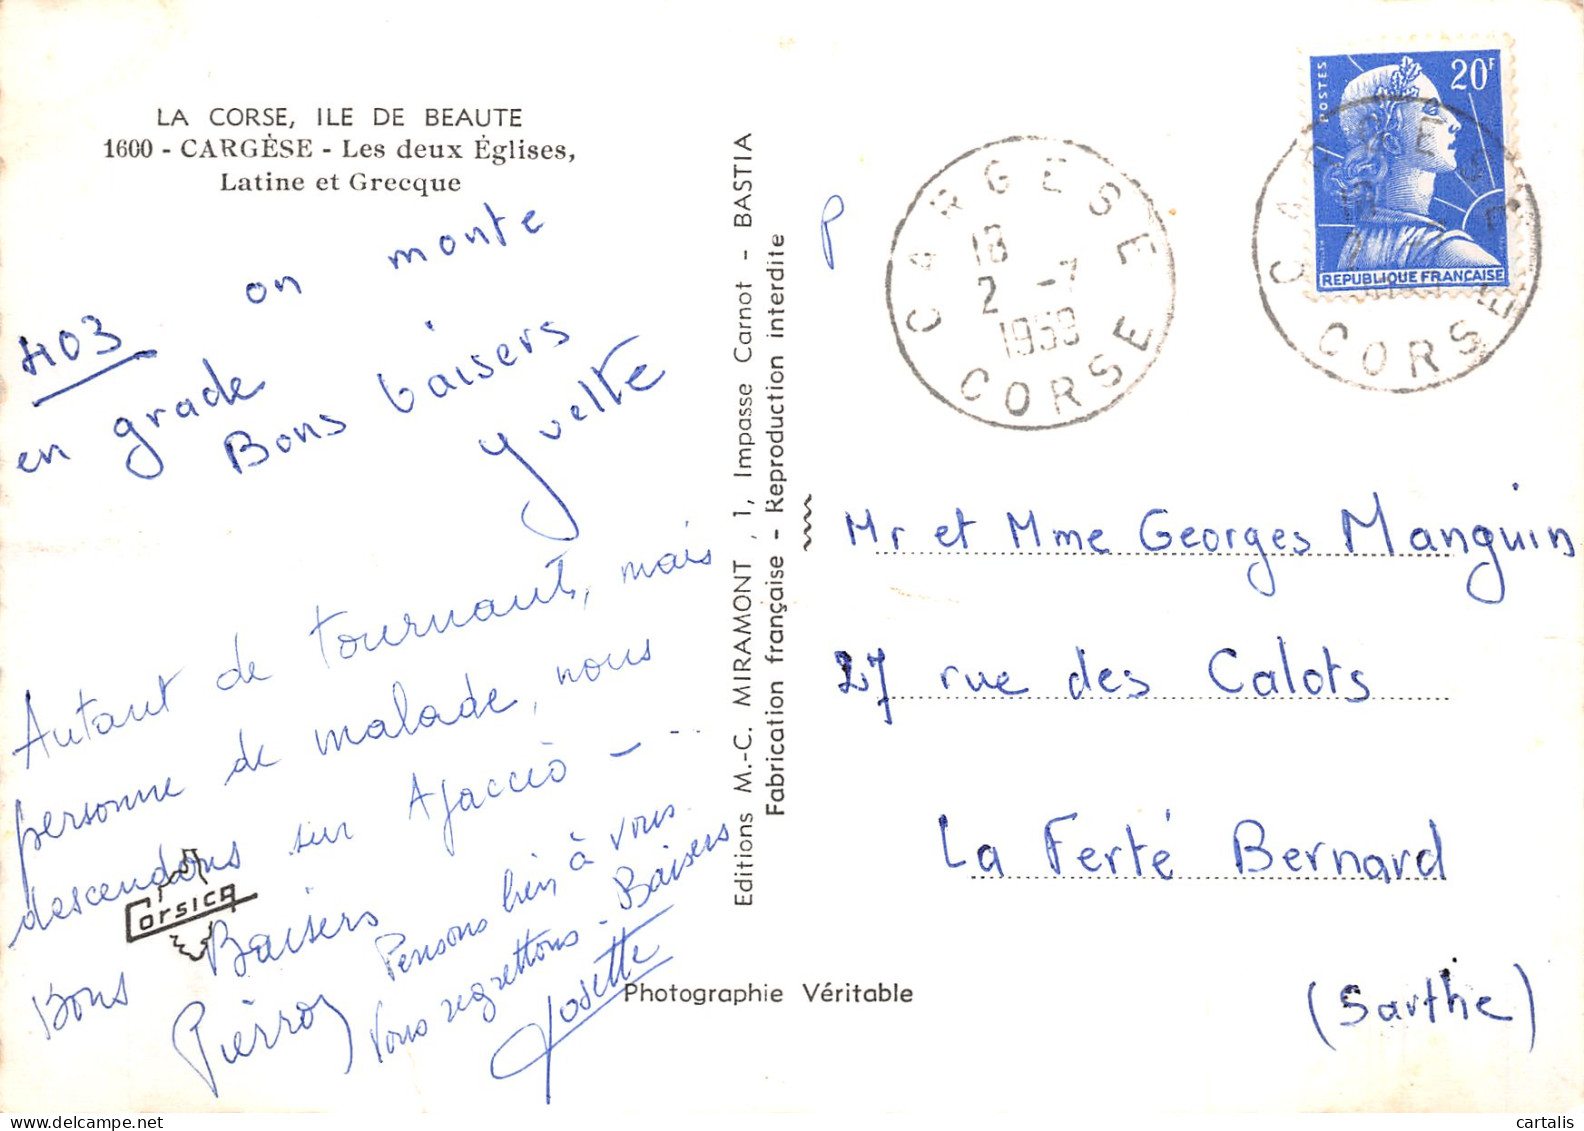 LA CORSE, ILE DE BEAUTE
1600 - CARGÈSE - Les deux Églises,
Latine et Grecque
403 on monte
en grade
Bons baisers
Yvette
Autant de tournants, mais
personne de malade, nous
descendons sur Ajaccio - ...
Bons Baisers
Pierrot
Pensons bien à vous.
Vous regrettons - Baisers
Josette
Corsica
Editions M.-C. MIRAMONT, 1, Impasse Carnot - BASTIA
Fabrication française - Reproduction interdite
Photographie Véritable
P
CARGESE
18
2 -7
1959
CORSE
POSTES
20F
REPUBLIQUE FRANÇAISE
CARGESE
18
CORSE
Mr et Mme Georges Manguin
27 rue des Calots
La Ferté Bernard
(Sarthe)
cartalis